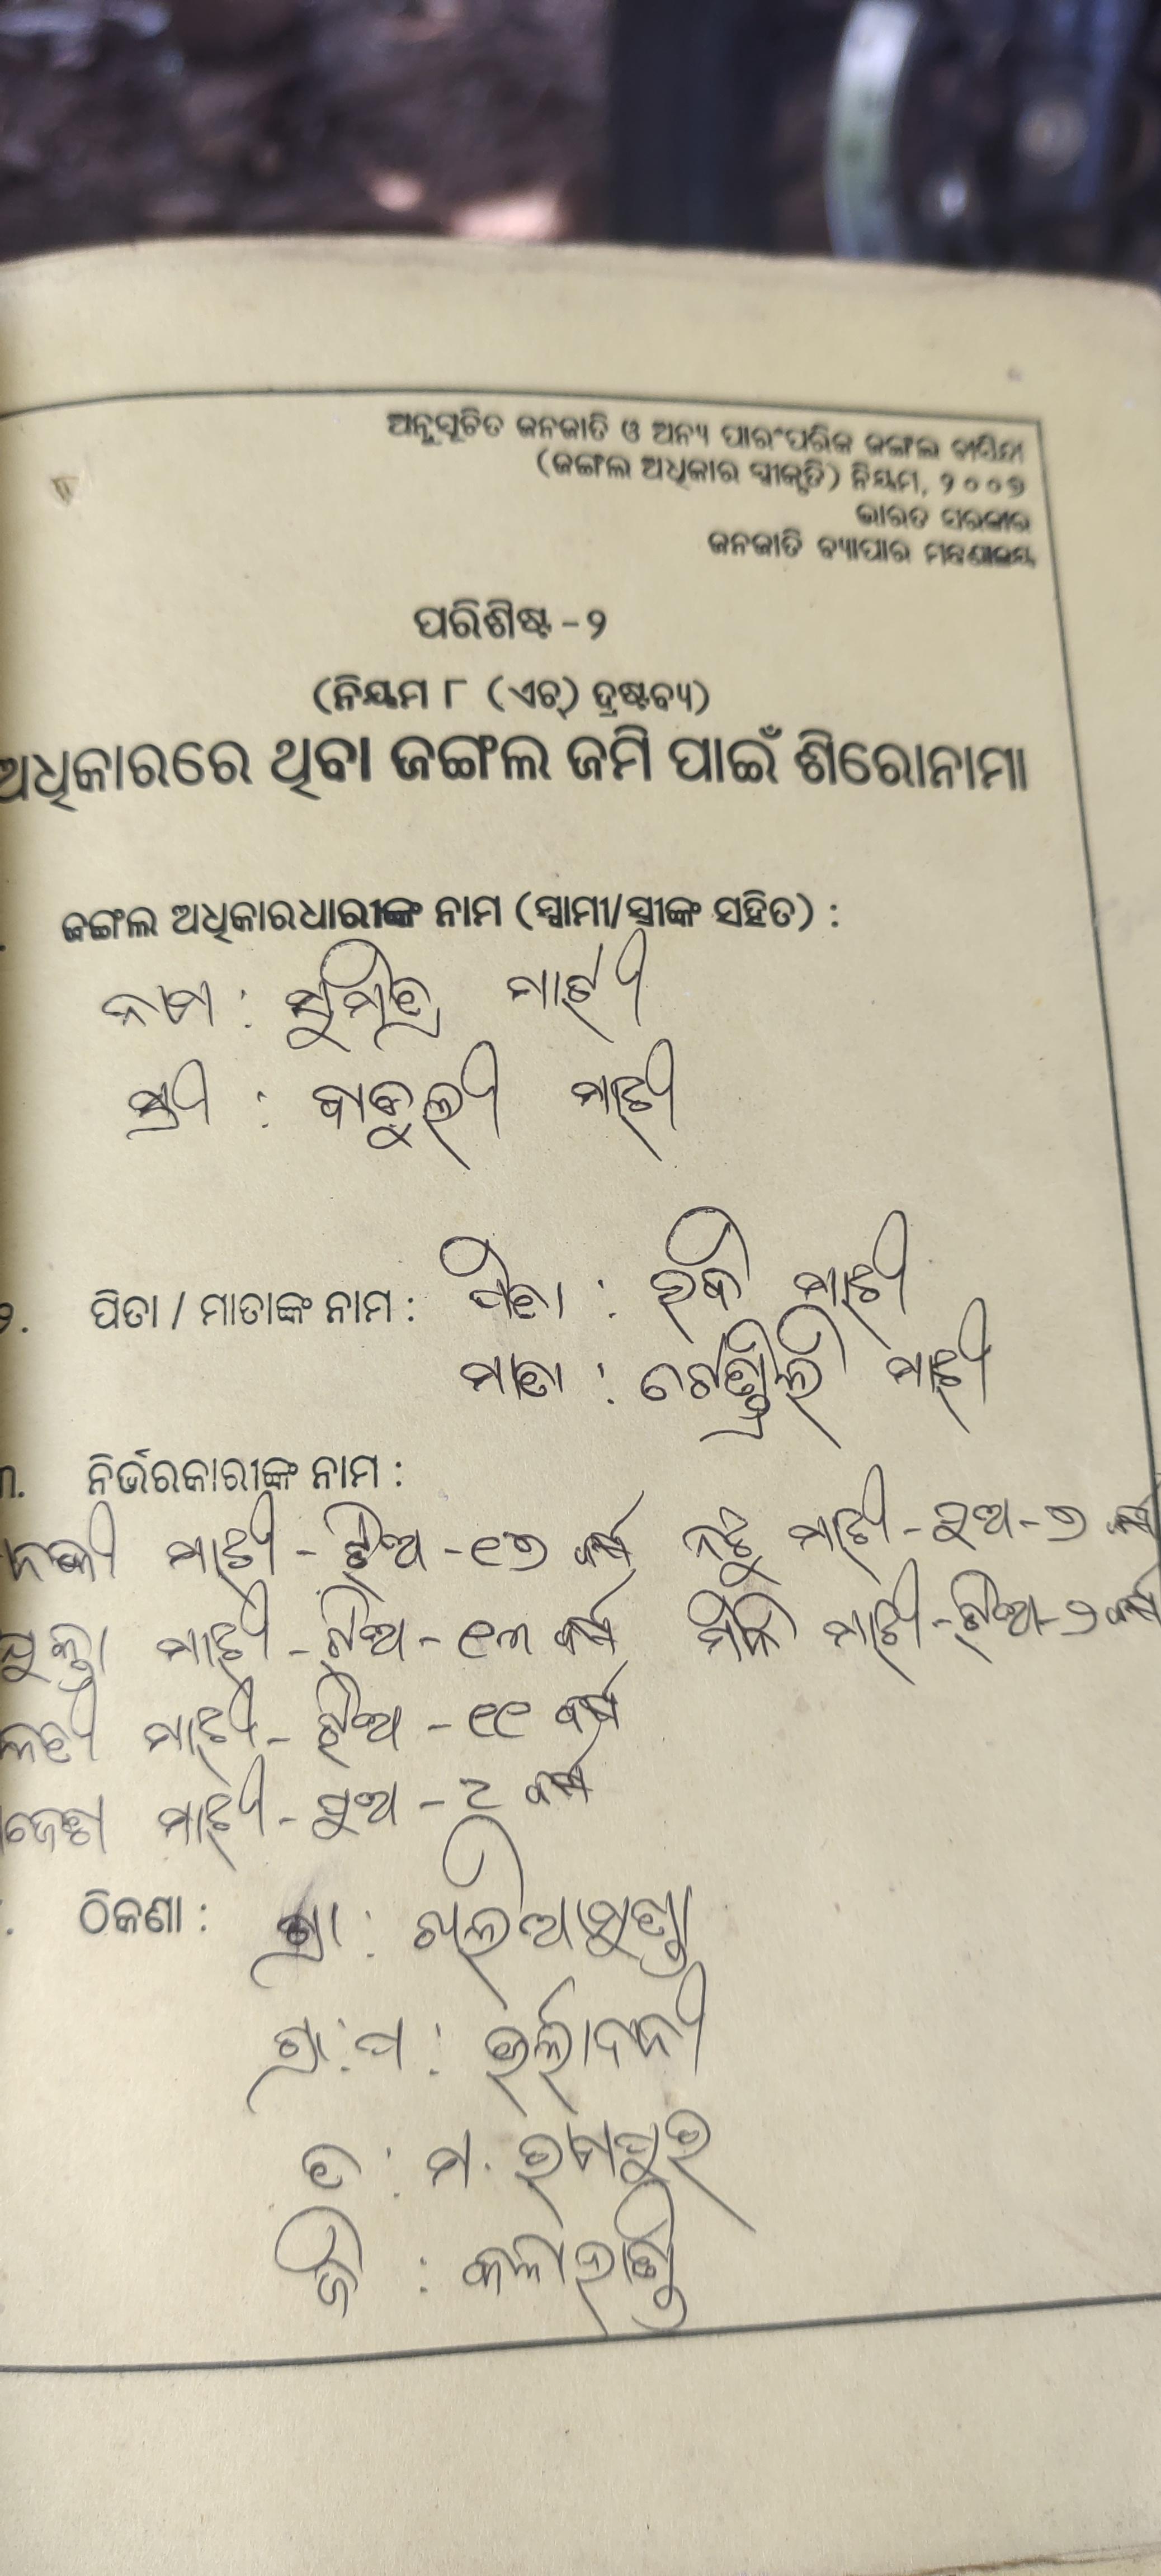 ଅନୁସୂଚିତ ଜନଜାତି ଓ ଅନ୍ୟ ପାରଂପରିକ ଜଙ୍ଗଲ ବାସିନ୍ଦା
(ଜଙ୍ଗଲ ଅଧିକାର ସ୍ୱୀକୃତି) ନିୟମ, ୨୦୦୭
ଭାରତ ସରକାର
ଜନଜାତି ବ୍ୟାପାର ମନ୍ତ୍ରଣାଳୟ
ପରିଶିଷ୍ଟ - ୨
(ନିୟମ ୮ (ଏଚ୍) ଦ୍ରଷ୍ଟବ୍ୟ)
ଅଧିକାରରେ ଥିବା ଜଙ୍ଗଲ ଜମି ପାଇଁ ଶିରୋନାମା
ଜଙ୍ଗଲ ଅଧିକାରଧାରୀଙ୍କ ନାମ (ସ୍ୱାମୀ/ସ୍ତ୍ରୀଙ୍କ ସହିତ) :
ନାମ : ସୁମିତ୍ର ମାଝୀ
ସ୍ତ୍ରୀ : ମାଝୀ
୨. ପିତା / ମାତାଙ୍କ ନାମ : ପିତା : ରବି ମାଝୀ
ମାତା : ମାଝୀ
୩. ନିର୍ଭରକାରୀଙ୍କ ନାମ :
ମାଝୀ - ଝିଅ - ୧୭ ବର୍ଷ ମାଝୀ - ପୁଅ - ୭ ବର୍ଷ
ମାଝୀ - ଝିଅ - ୧୩ ବର୍ଷ ମାଝୀ - ଝିଅ - ୨ ବର୍ଷ
ମାଝୀ - ଝିଅ - ୧୧ ବର୍ଷ
ମାଝୀ - ପୁଅ - ବର୍ଷ
ଠିକଣା : ଗ୍ରା :
ଗ୍ରା : ପ : ଉର୍ଲାଦାନୀ
ତ : ମ. ରାମପୁର
ଜି : କଳାହାଣ୍ଡି